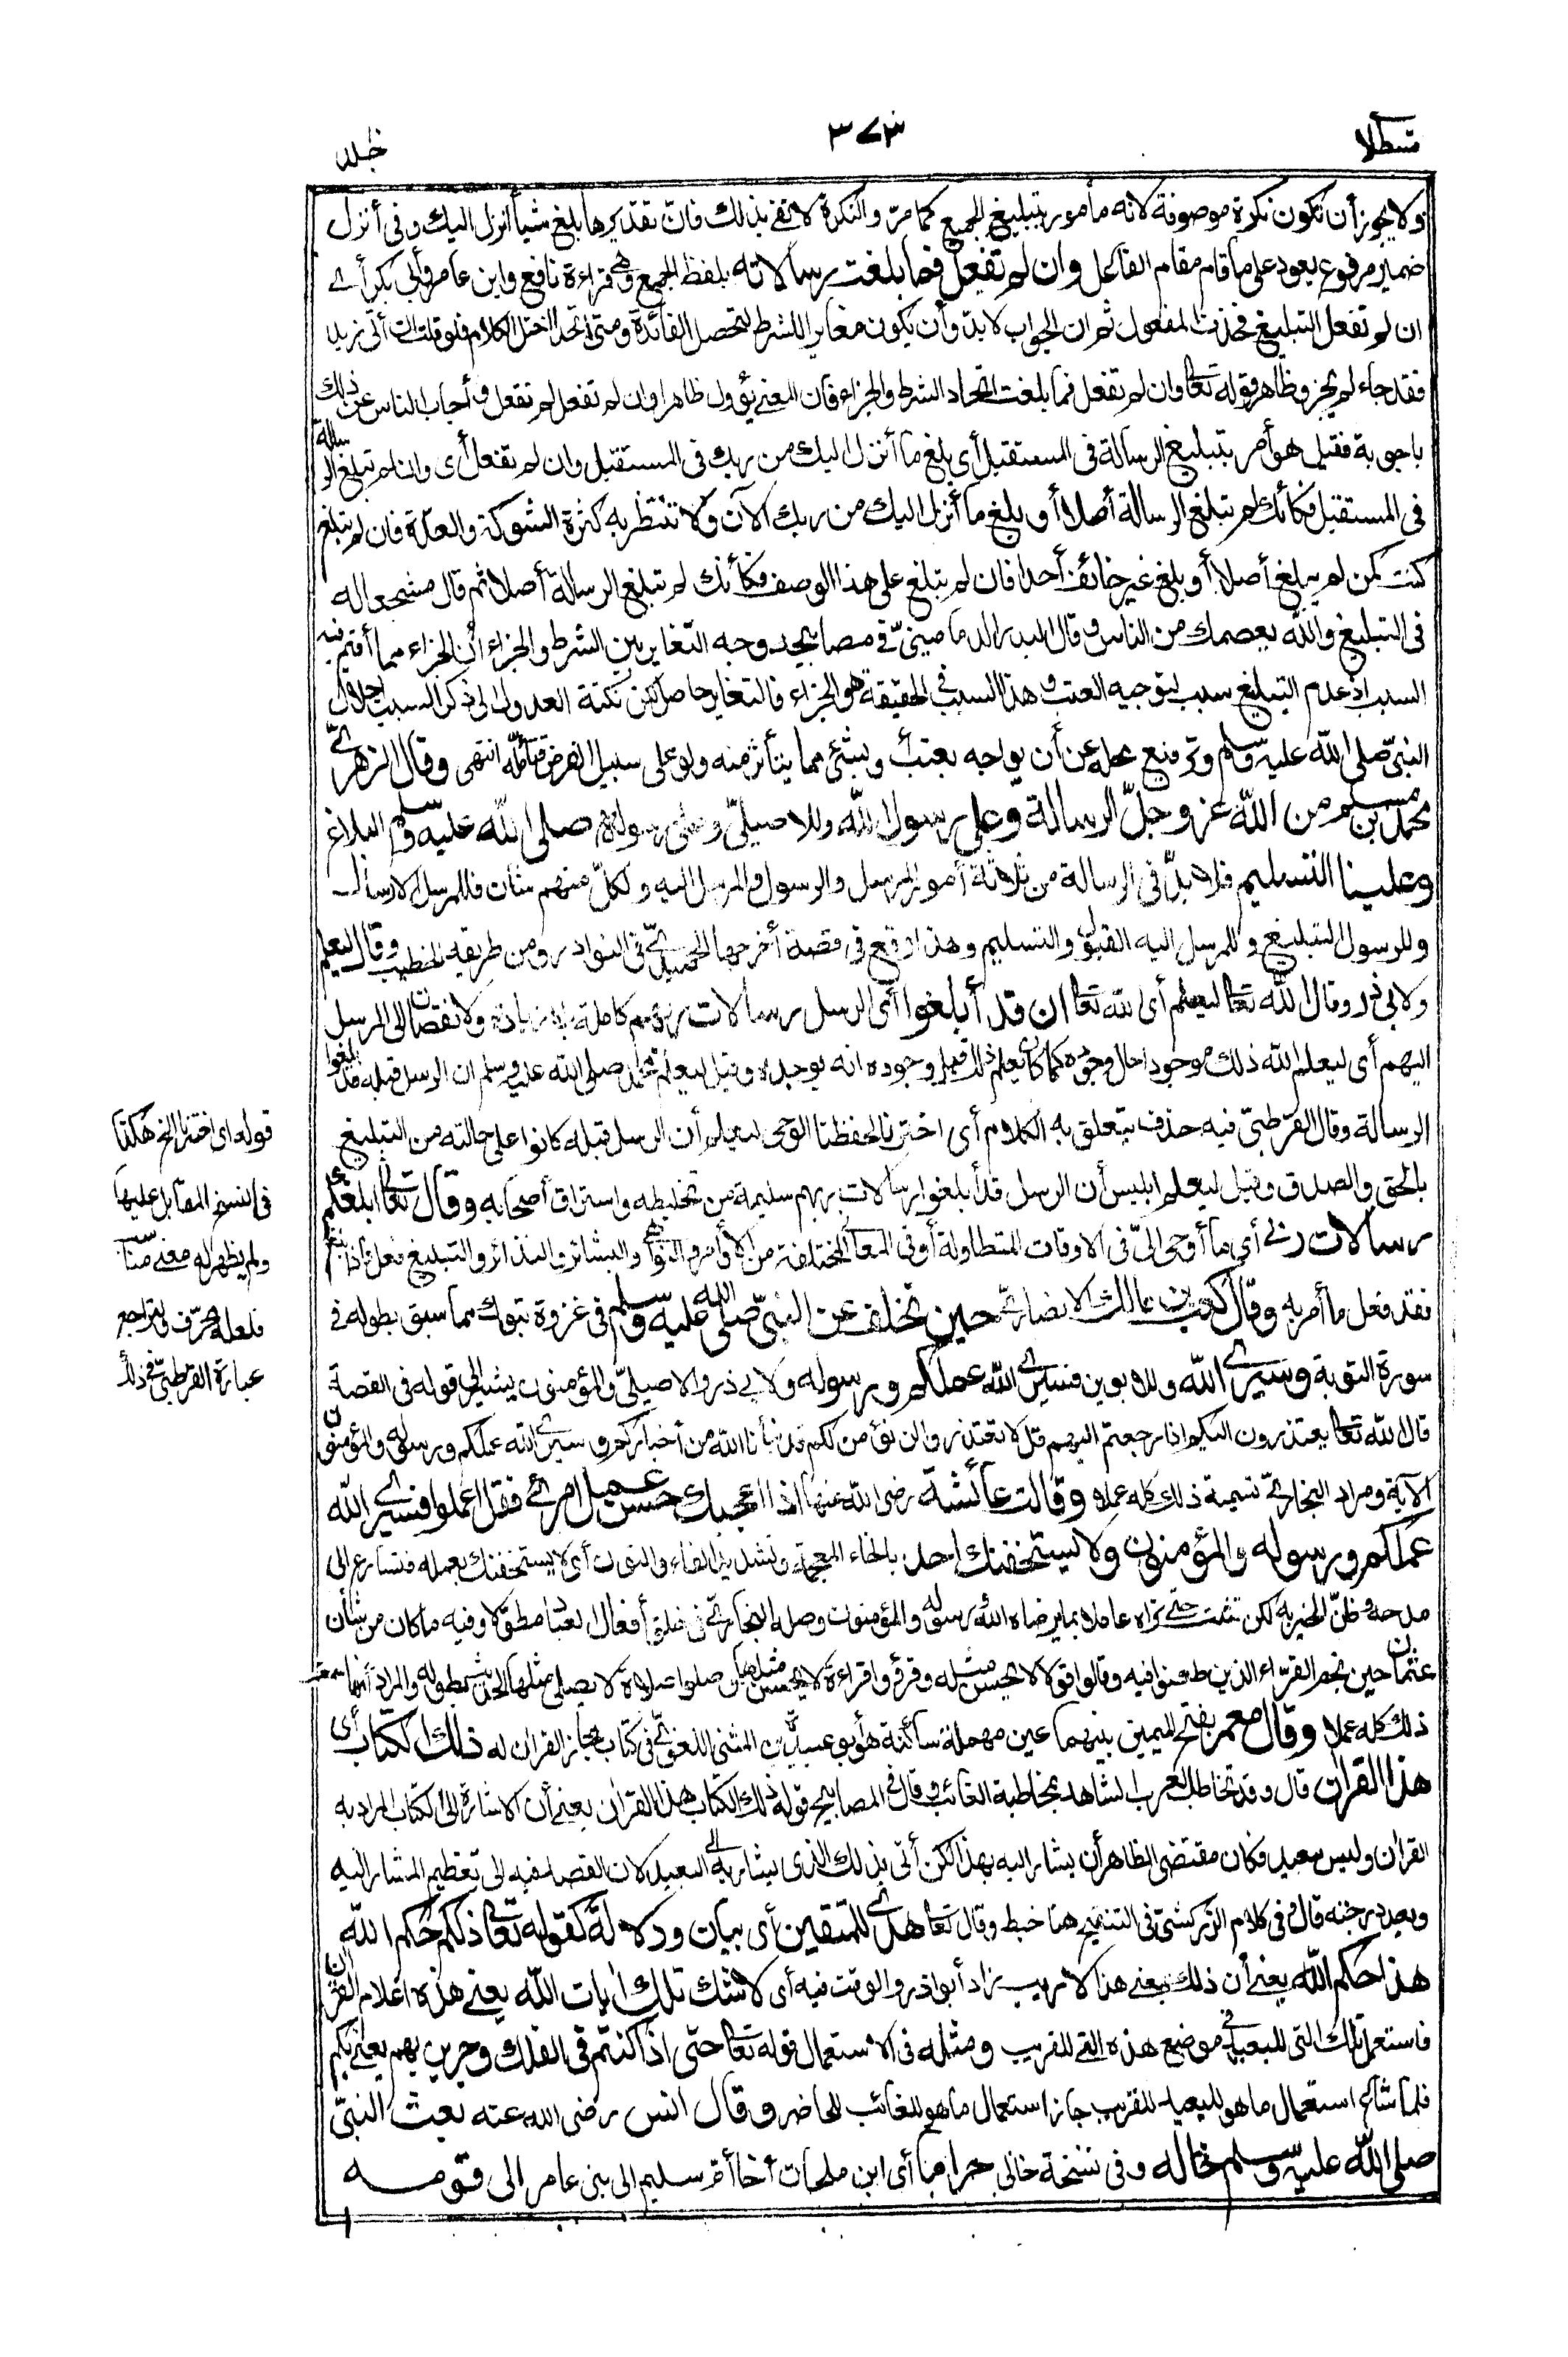 قسطلا
٣٧٣
جلد
ولا يجوز أن تكون نكرة موصوفة لانه مأمور بتبليغ الجميع كما مرّ والنكرة لا تفي بذلك فان تقديرها بلغ شيأ أنزل اليك وفى أنزل
ضمير مرفوع يعود على ما قام مقام الفاعل وان لم تفعل فما بلغت رسالاته بلفظ الجمع وهى قراءة نافع وابن عامر وأبى بكر أے
ان لم تفعل التبليغ فحذف المفعول ثم ان الجواب لا بدّ وأن يكون مغاير اللشرط لتحصل الفائدة ومتى اتحدا اختل الكلام فلو قلت ان أتى زيد
فقد جاء لم يجز وظاهر قوله تعالى وان لم تفعل فما بلغت اتحاد الشرط والجزاء فان المعنے يؤول ظاهرا وان لم تفعل لم تفعل وأجاب الناس عن ذلك
باجوبة فقيل هو أمر بتبليغ الرسالة فى المستقبل أى بلغ ما أنزل اليك من ربك فى المستقبل وان لم تفعل أى وان لم تبلغ الرسالة
فى المستقبل فكأنك لم تبلغ الرسالة أصلا أو بلغ ما أنزل اليك من ربك الآن ولا تنتظر به كثرة الشوكة والعدّة فان لم تبلغ
كنت كمن لم يبلغ أصلا أو بلغ غير خائف أحدا فان لم تبلغ على هذا الوصف فكأنك لم تبلغ الرسالة أصلا ثم قال مشجعا له
فى التبليغ والله يعصمك من الناس وقال البدر الدمامينىّ فى مصابيحه وجه التغاير بين الشرط والجزاء أن الجزاء مما أقيم فيه
السبب اذ عدم التبليغ سبب لتوجيه العتب وهذا السبب فى الحقيقة هو الجزاء فالتغاير حاصل لكن نكتة العدول الى ذكر السبب اجلال
النبىّ صلى الله عليه وسلم وترفيع محله عن أن يواجه بعتب أو بشئ مما يتأثر منه ولو على سبيل الفرض فتأمّله انتهى وقال الزهرىّ
محمد بن مسلم من الله عز وجلّ الرسالة وعلى رسول الله وللاصيلىّ وعلى رسوله صلى الله عليه وسلم البلاغ
وعلينا التسليم فلا بدّ فى الرسالة من ثلاثة أمور المرسل والرسول والمرسل اليه ولكلّ منهم شأن فللمرسل الارسال
وللرسول التبليغ وللمرسل اليه القبول والتسليم وهذا وقع فى قصة أخرجها الحميدىّ فى النوادر ومن طريقه الخطيب وقال ليعلم
ولابى ذر وقال الله تعالى ليعلم أى الله تعالى ان قد أبلغوا أى الرسل رسالات ربهم كاملة بلا زيادة ولا نقصان الى المرسل
اليهم أى ليعلم الله ذلك موجودا حال وجوده كما كان يعلم ذلك قبل وجوده انه يوجد وقيل ليعلم محمد صلى الله عليه وسلم ان الرسل قبله قد بلغوا
الرسالة وقال القرطبىّ فيه حذف يتعلق به الكلام أى اخترنا لحفظنا الوحى ليعلم أن الرسل قبله كانوا على حالته من التبليغ
بالحق والصدق وقيل ليعلم ابليس أن الرسل قد أبلغوا رسالات ربهم سليمة من تخليطه واستراق أصحابه وقال تعالى أبلغكم
رسالات ربى أى ما أوحى الىّ فى الاوقات المتطاولة أو فى المعانى المختلفة من الأوامر والنواهى والبشائر والنذائر والتبليغ فعل فاذا بلغ
فقد فعل ما أمر به وقال كعب بن مالك الانصارىّ حين تخلف عن النبىّ صلى الله عليه وسلم فى غزوة تبوك مما سبق بطوله فى
سورة التوبة وسيرى الله وللابوين فسيرى الله عملكم ورسوله ولابى ذر والاصيلىّ والمؤمنون يشير الى قوله فى القصة
قال الله تعالى يعتذرون اليكم اذا رجعتم اليهم قل لا تعتذروا لن نؤمن لكم قد نبأنا الله من أخباركم وسيرى الله عملكم ورسوله والمؤمنون
الآية ومراد البخارىّ تسمية ذلك كله عملا وقالت عائشة رضى الله عنها اذا أعجبك حسن عمل امرئ فقل اعملوا فسيرى الله
عملكم ورسوله والمؤمنون ولا يستخفنك أحد بالخاء المعجمة وتشديد الفاء والنون أى لا يستخفنك بعمله فتسارع الى
مدحه وظنّ الخير به لكن تثبت حتى تراه عاملا بما يرضاه الله ورسوله والمؤمنون وصله البخارىّ فى خلق أفعال العباد مطوّلا وفيه ما كان من شأن
عثمان حين نجم القرّاء الذين طعنوا فيه وقالوا قولا لا يحسن مثله وقرؤا قراءة لا يحسن مثلها وصلوا صلاة لا يصلى مثلها الحديث بطوله والمراد أنها سمت
ذلك كله عملا وقال معمر بفتح الميمين بينهما عين مهملة ساكنة هو أبو عبيدة بن المثنى اللغوىّ فى كتاب مجاز القرآن له ذلك الكتاب أى
هذا القرآن قال وقد تخاطب العرب الشاهد بمخاطبة الغائب وقال فى المصابيح قوله ذلك الكتاب هذا القرآن يعنى أن الاشارة الى الكتاب المراد به
القرآن وليس ببعيد فكان مقتضى الظاهر أن يشار اليه بهذا لكن أتى بذلك الذى يشار به الى البعيد لان القصد فيه الى تعظيم المشار اليه
وبعد درجته قال وفى كلام الزركشىّ فى التنقيح هنا خبط وقال تعالى هدى للمتقين أى بيان ودلالة كقوله تعالى ذلكم حكم الله
هذا حكم الله يعنى أن ذلك بمعنى هذا لا ريب زاد أبوا ذر والوقت فيه أى لا شك تلك آيات الله يعنى هذه أعلام القرآن
فاستعمل تلك التى للبعيد فى موضع هذه التى للقريب ومثله فى الاستعمال قوله تعالى حتى اذا كنتم فى الفلك وجرين بهم يعنى بكم
فلما شاع استعمال ما هو للبعيد للقريب جاز استعمال ما هو للغائب للحاضر وقال أنس رضى الله عنه بعث النبىّ
صلى الله عليه وسلم خاله وفى نسخة خالى حراما أى ابن ملحان أخا أم سليم الى بنى عامر الى قومه
قوله اى اخترنا الخ هكذا
فى النسخ المقابل عليها
ولم يظهر له معنى مناسب
فلعله محرّف وليراجع
عبارة القرطبىّ فى ذلك